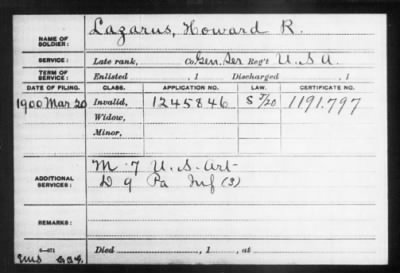 NAME OF SOLDIER: Lazarus, Howard R.
SERVICE: Late rank, Co. Gen. Ser Reg't U.S.A.
TERM OF SERVICE: Enlisted , 1 Discharged , 1
DATE OF FILING. CLASS. APPLICATION NO. LAW. CERTIFICATE NO.
1900 Mar 20 Invalid, 1245846 1191.797
Widow,
Minor,
ADDITIONAL SERVICES: M-7 U.S. Art-
D 9 Pa Inf (3)
REMARKS:
Died , 1 , at